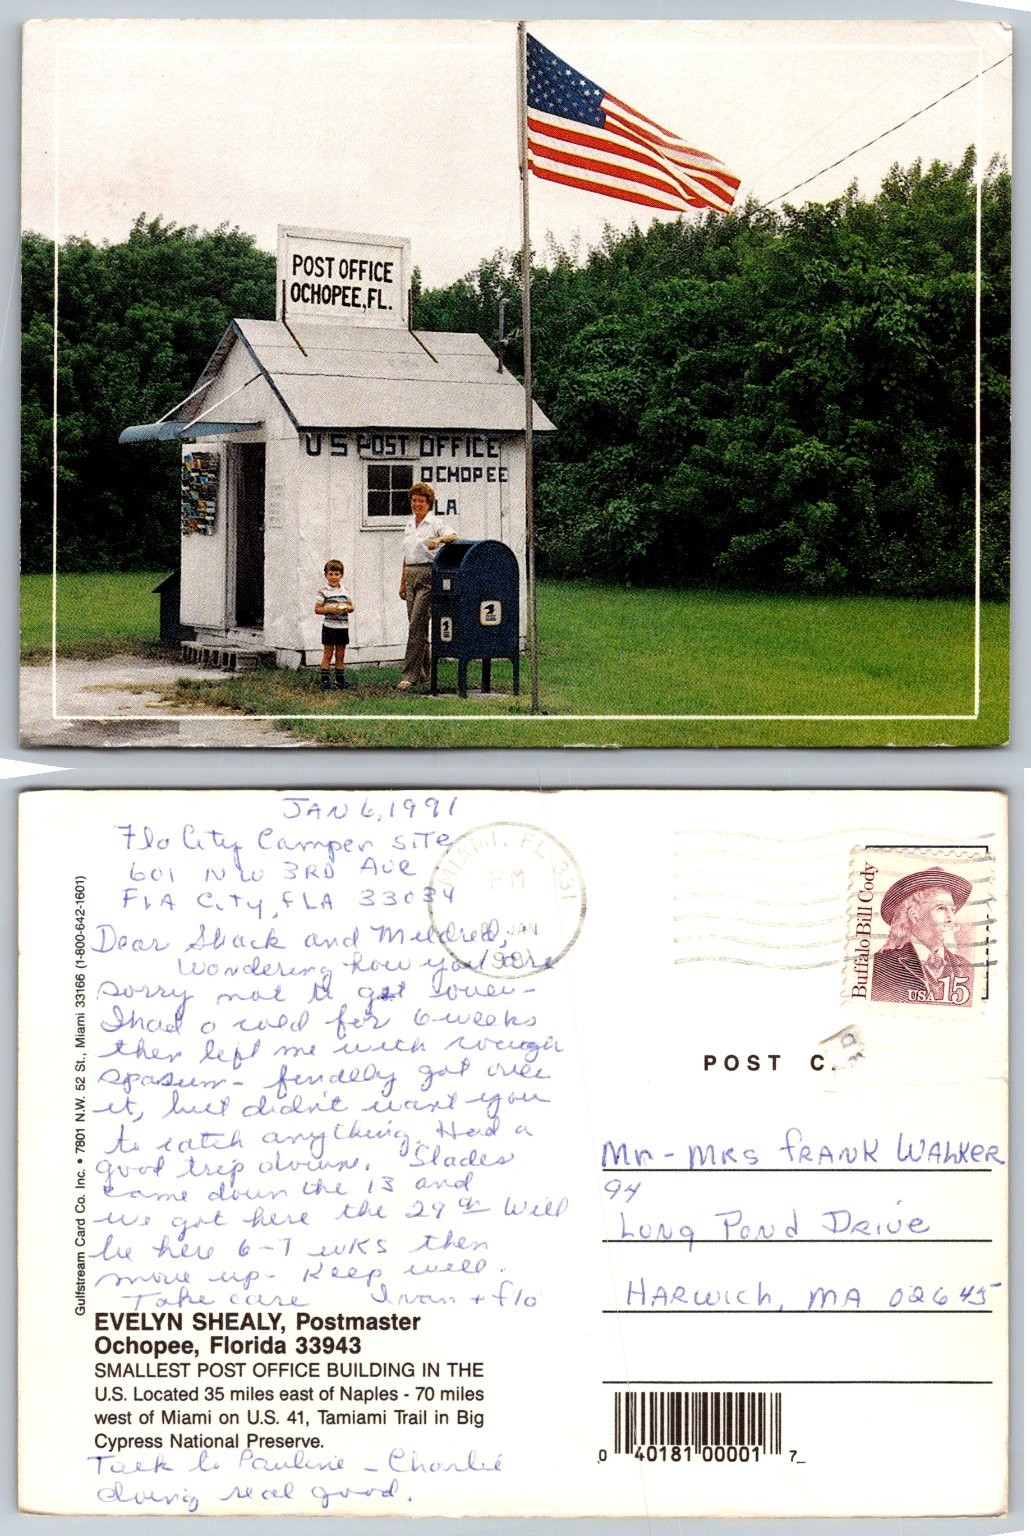 POST OFFICE
OCHOPEE, FL.
US POST OFFICE
OCHOPEE
LA
JAN 6, 1991
Flo City Camper SiTe
601 NW 3RD Ave
FLA City, FLA 33034
Dear Shack and Mildred,
Wondering how you are
sorry not to get over -
I had a cold for 6 weeks
then left me with cough
spasum - finally got over
it, but didn't want you
to catch anything. Had a
good trip down. Slades
came down the 13 and
we got here the 29th Will
be here 6-7 wks then
move up - Keep well.
Take care Ivan + Flo
EVELYN SHEALY, Postmaster
Ochopee, Florida 33943
SMALLEST POST OFFICE BUILDING IN THE
U.S. Located 35 miles east of Naples - 70 miles
west of Miami on U.S. 41, Tamiami Trail in Big
Cypress National Preserve.
Talk to Pauline - Charlie
doing real good.
Gulfstream Card Co. Inc. • 7801 N.W. 52 St., Miami 33166 (1-800-642-1601)
MIAMI, FL 331
PM
8 JAN
1991
Buffalo Bill Cody
USA 15
POST C
Mr - MRS FRANK WALKER
94
Long Pond Drive
HARWICH, MA 02645
0 40181 00001 7